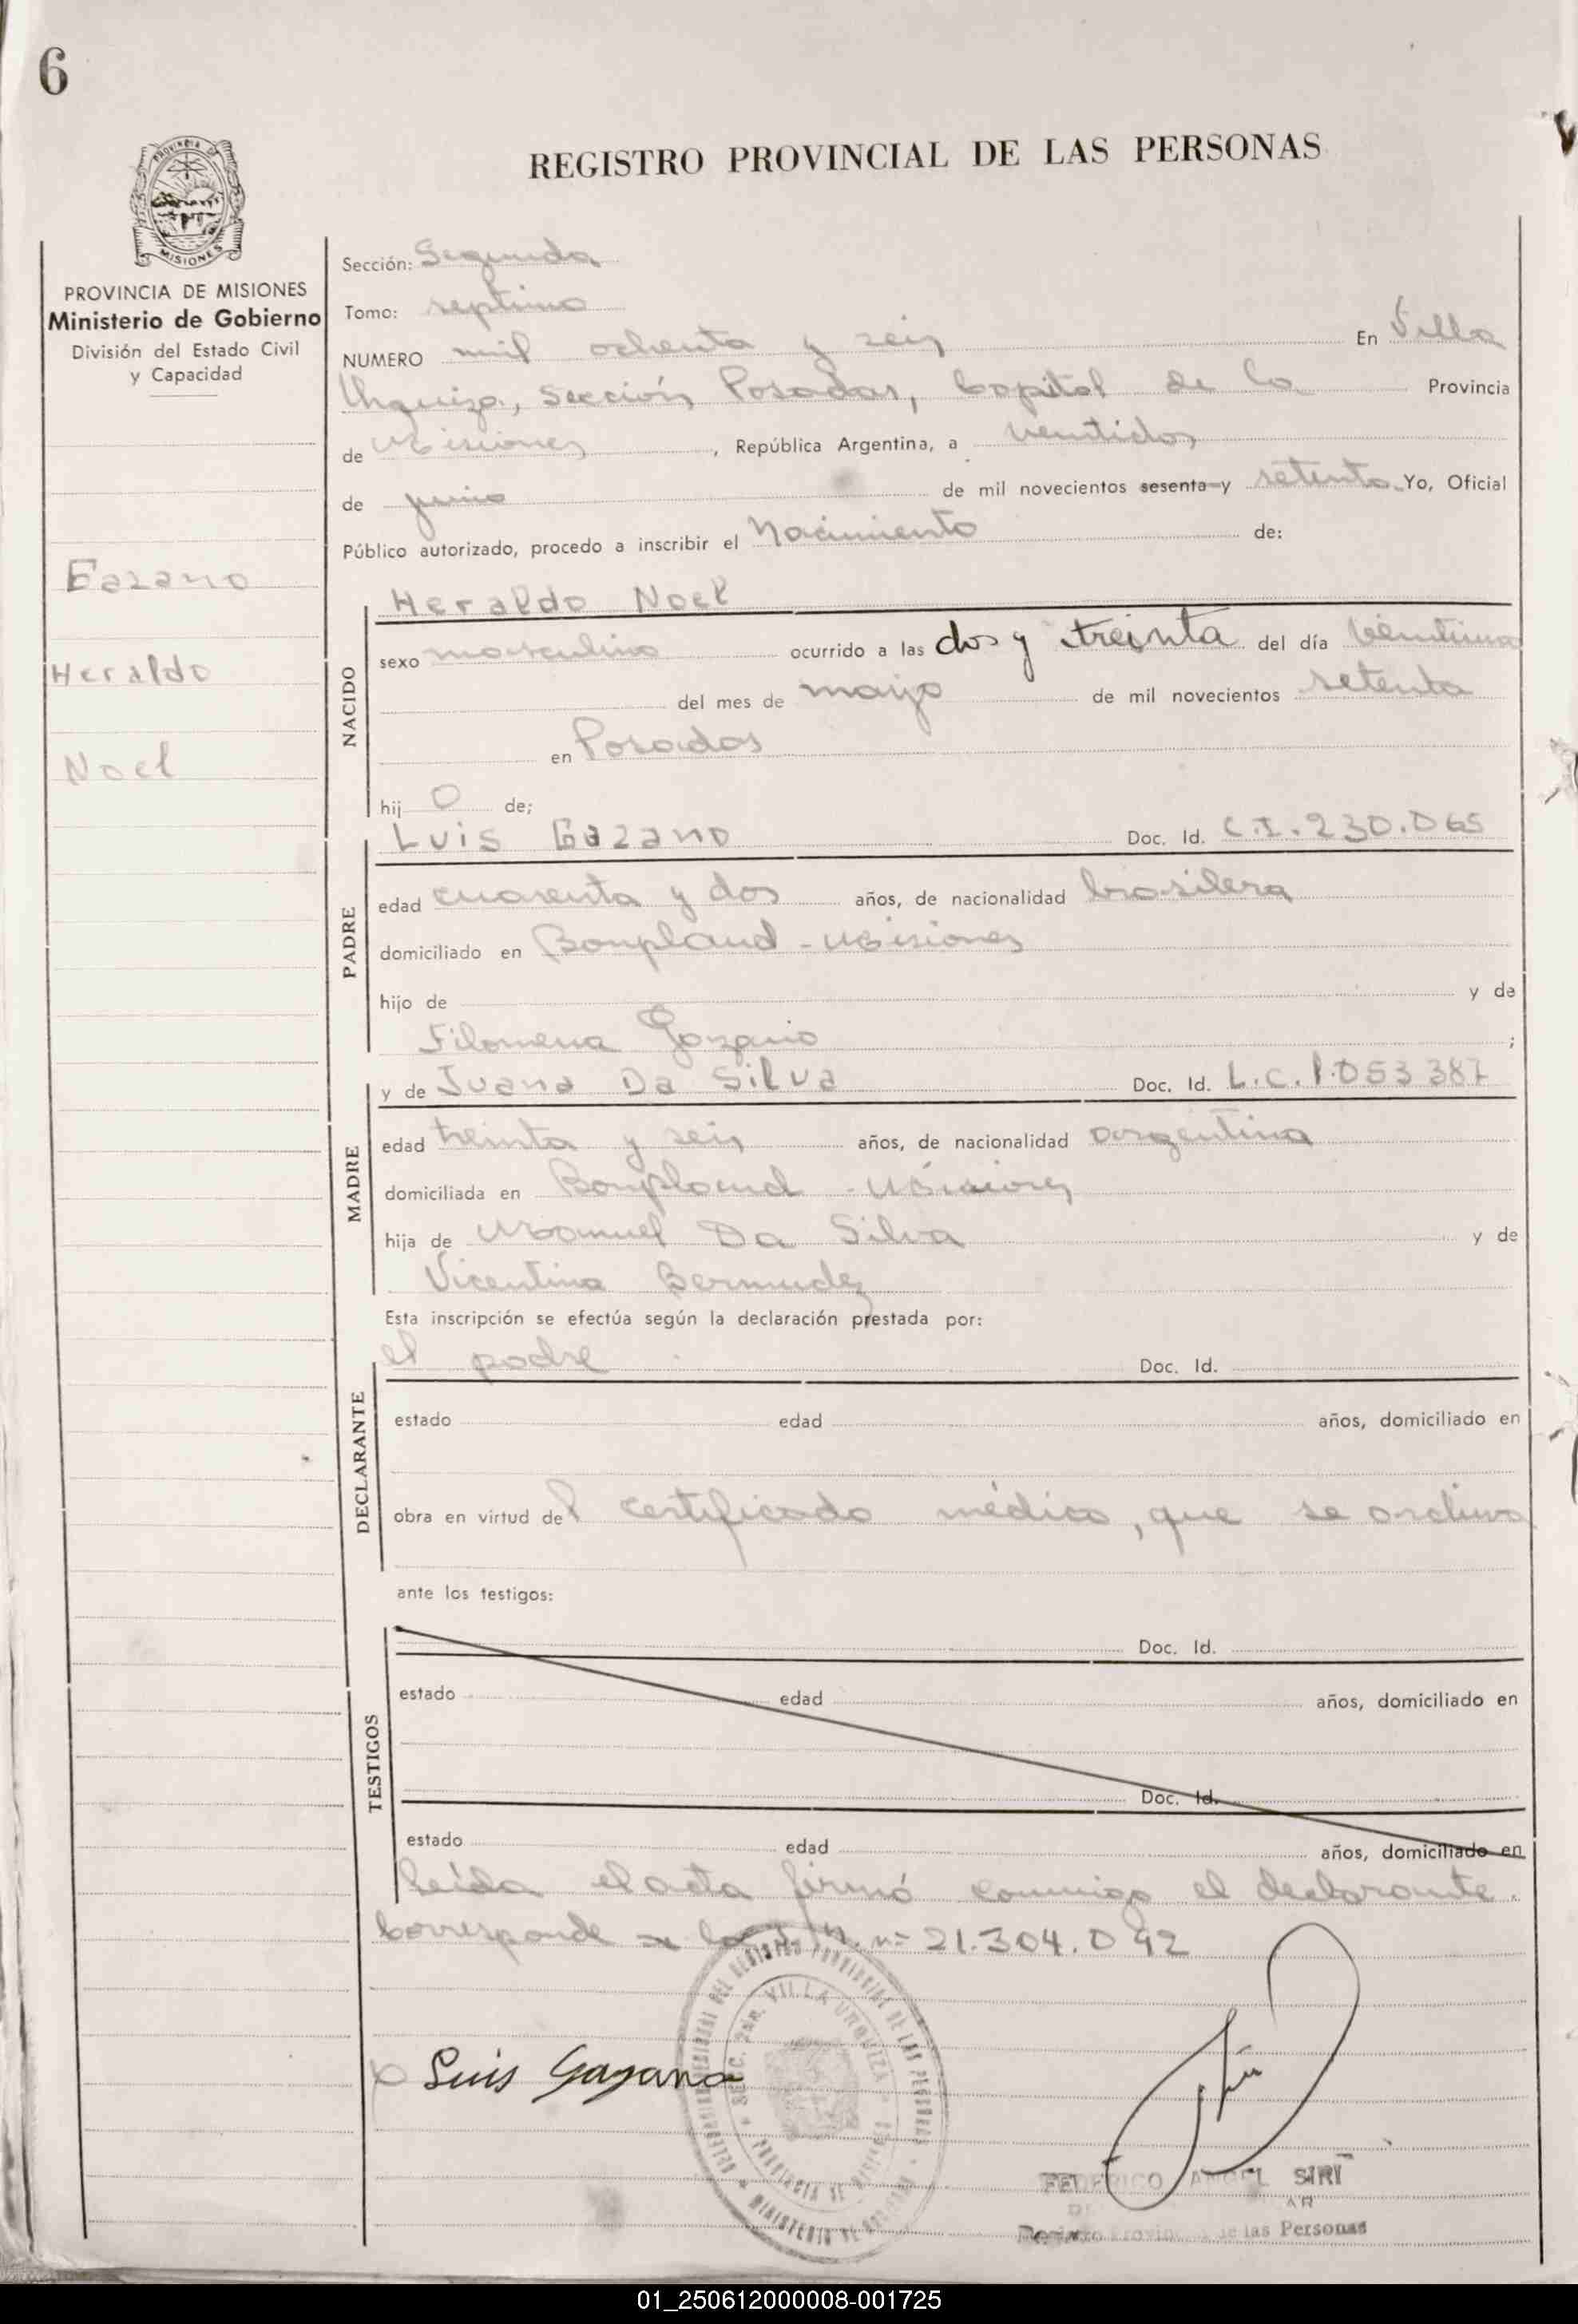 6
REGISTRO PROVINCIAL DE LAS PERSONAS
PROVINCIA DE MISIONES
Ministerio de Gobierno
División del Estado Civil
y Capacidad
Gazano
Heraldo
Noel
Sección: Segunda
Tomo: septimo
NUMERO mil ochenta y seis En Villa
Urquiza, Sección Posadas, Capital de la Provincia
de Misiones, República Argentina, a veintidos
de junio de mil novecientos sesenta y setenta Yo, Oficial
Público autorizado, procedo a inscribir el Nacimiento de:
NACIDO
Heraldo Noel
sexo masculino ocurrido a las dos y treinta del día veintiuno
del mes de mayo de mil novecientos setenta
en Posadas
hij o de;
PADRE
Luis Gazano Doc. Id. C.I. 230.065
edad cuarenta y dos años, de nacionalidad brasilera
domiciliado en Bonpland - Misiones
hijo de y de
Filomena ;
MADRE
y de Juana Da Silva Doc. Id. L.C. 1.053 387
edad treinta y seis años, de nacionalidad argentina
domiciliada en Bonpland - Misiones
hija de Manuel Da Silva y de
Vicentina Bermudez
Esta inscripción se efectúa según la declaración prestada por:
DECLARANTE
el padre Doc. Id.
estado edad años, domiciliado en
obra en virtud del certificado médico, que se archiva
ante los testigos:
TESTIGOS
Doc. Id.
estado edad años, domiciliado en
Doc. Id.
estado edad años, domiciliado en
Leída el acta firmó conmigo el declarante.
Corresponde a la n= 21.304.092
Luis Gazano
SECC. 2da. VILLA URQUIZA
FEDERICO ANGEL SIRI
Registro Provincial de las Personas
01_250612000008-001725